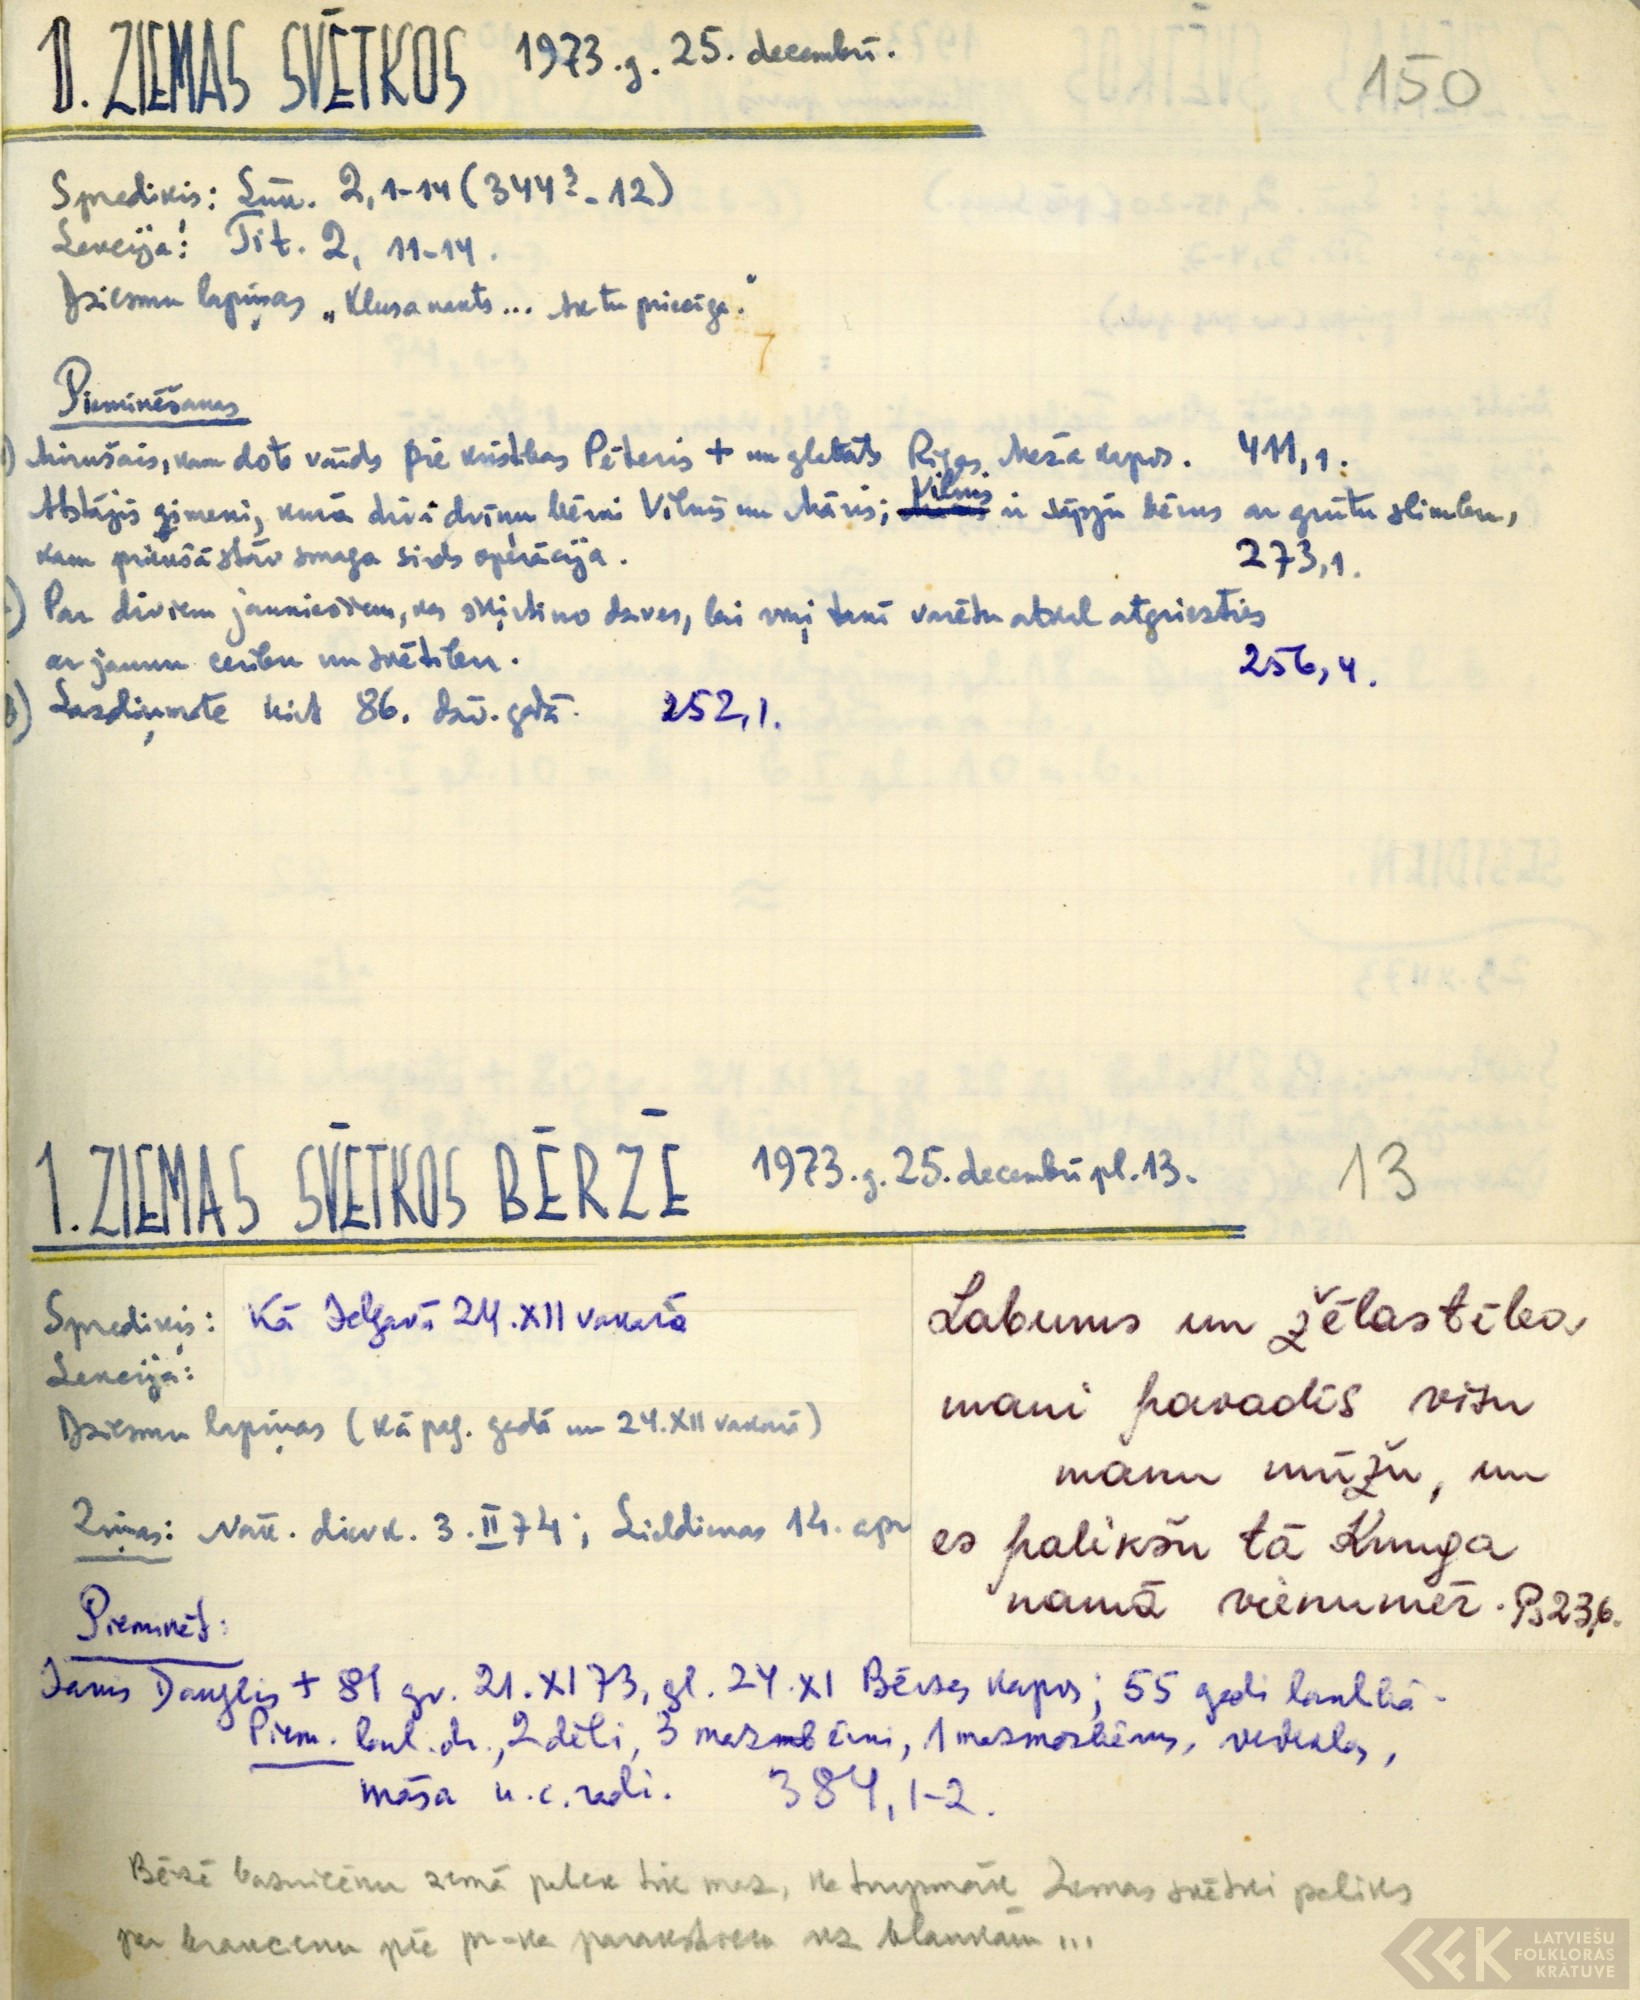 1. ZIEMAS SVĒTKOS 1973.g. 25. decembrī. 150
Sprediķis: Lūk. 2, 1-14 (344? - 12)
Lekcija: Tit. 2, 11-14.
Dziesmu lapiņas „Klusa nakts... Ak tu priecīga."
Pieminēšanas
1) Mirušais, kam dots vārds pie kristības Pēteris + un glabāts Rīgas Meža kapos. 411,1.
Atstājis ģimeni, kurā divi dvīņu bērni Vilnis un Māris; Vilnis ir sāpju bērns ar grūtu slimību,
kam priekšā stāv smaga sirds operācija. 273,1.
2) Par diviem jauniešiem, kas šķirti no dzīves, lai viņi tanī varētu atkal atgriezties
ar jaunu cerību un svētību. 256,4.
3) Lazdiņmāte 86. dzīv. gadā. 252,1.
1. ZIEMAS SVĒTKOS BĒRZĒ 1973.g. 25. decembrī pl. 13. 13
Sprediķis: Kā Jelgavā 24.XII vakarā
Lekcija:
Dziesmu lapiņas (kā pag. gadā un 24.XII vakarā)
Ziņas: Nāk. dievk. 3.II 74; Lieldienas 14. apr
Labums un žēlastība
mani pavadīs visu
manu mūžu, un
es palikšu tā Kunga
namā vienumēr. Ps 23,6.
Pieminēt:
Jānis Dauglis + 81 gv. 21.XI 73, gl. 24.XI Bērzes kapos; 55 gadi laulībā.
Piem. laul. dr., 2 dēli, 3 mazbērni, 1 mazmazbērns, vedeklas,
māsa u.c. radi. 384, 1-2.
Bērzē baznīcēnu zemā pulck tik maz, ka turpmāk Ziemas svētki paliks
par braucienu pie pr-ka parakstiem uz blankām...
LATVIEŠU
FOLKLORAS
KRĀTUVE